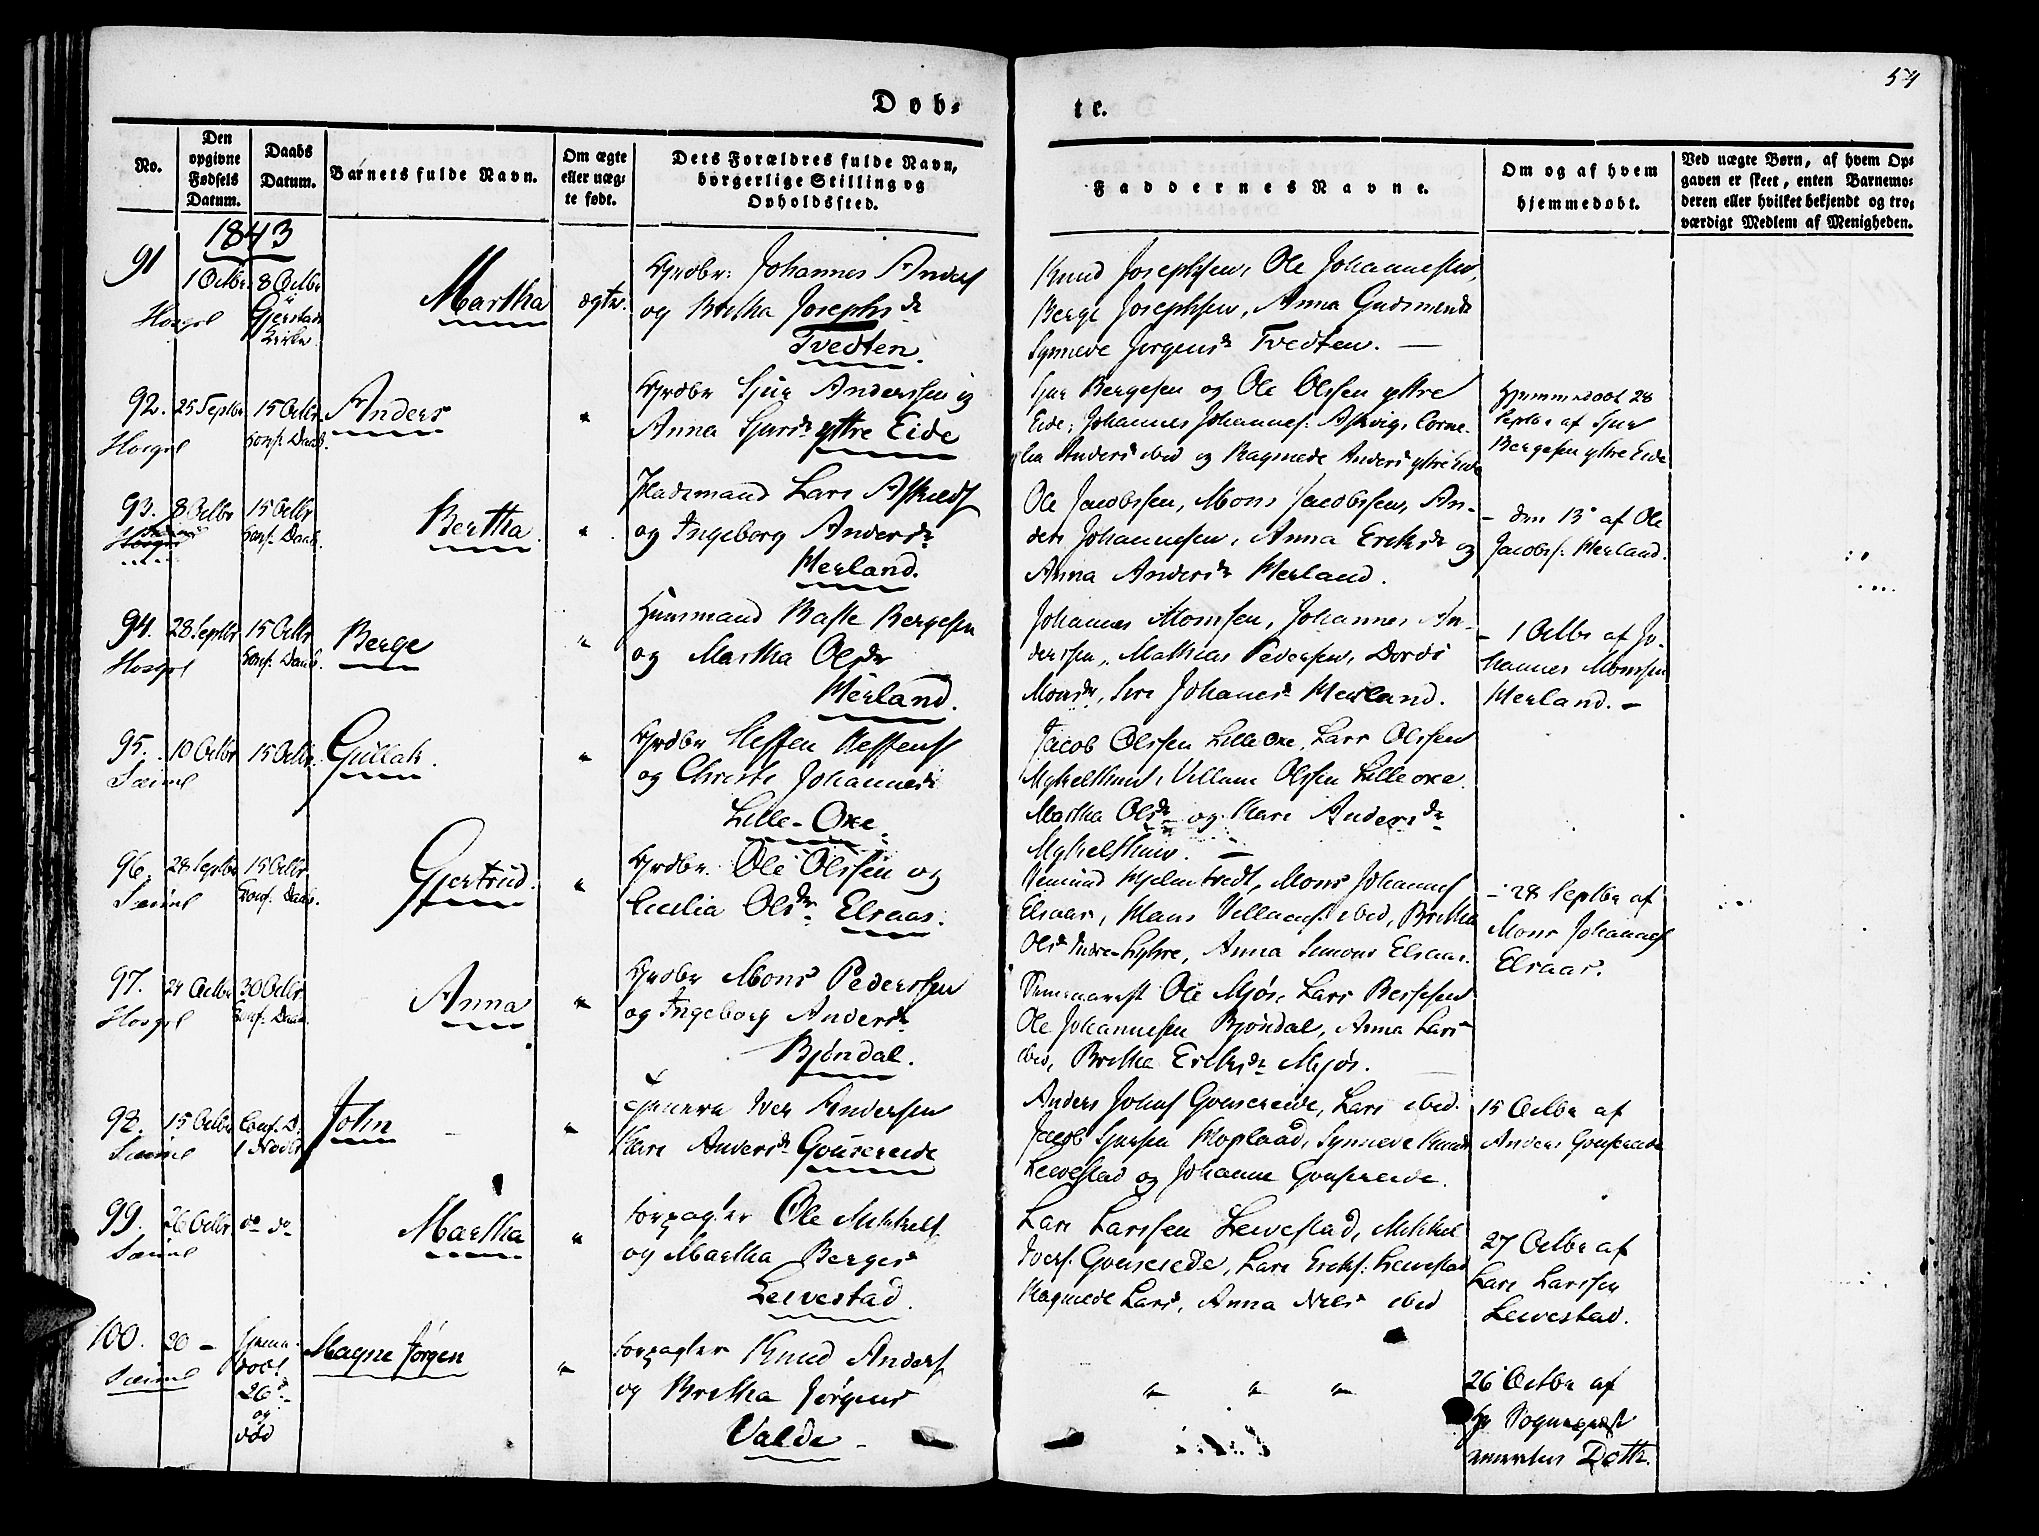 54
Døb-
te.
No.
Den opgivne Fødsels Datum.
Daabs Datum.
Barnets fulde Navn.
Om ægte eller uæg-te født.
Dets Forældres fulde Navn, borgerlige Stilling og Opholdssted.
Faddernes Navne.
Om og af hvem hjemmedøbt.
Ved uægte Børn, af hvem Op-gaven er skeet, enten Barnemo-deren eller hvilket bekjendt og tro-værdigt Medlem af Menigheden.
1843
91
1 Octbr 8 Octbr
Gjerstad Kirke
Martha
ægte.
Grdbr: Johannes Anders
og Britha Josephsdr
Tvedten.
Knud Josephsen, Ole Johannessen,
Berge Josephsen, Anna Gudmunds
Synneve Jørgensdr Tvedten. —
92. 25 Septbr 15 Octbr
Conf: Daab.
Anders
"
Grdbr Sjur Anderssen og
Anna Sjursdr yttre Eide
Sjur Bergesen og Ole Olssen yttre
Eide, Johannes Johannes. Askvig, Corne-
lia Anders ibid og Ragnede Anders yttre Eide
Hjemmedøbt 28
Septbr af Sjur
Bergesen yttre Eide
93. 8 Octbr 15 Octbr
Conf. Daab.
Bertha.
"
Pladsmand Lars
og Ingeborg Andersdr
Herland.
Ole Jacobssen, Mons Jacobssen, An-
ders Johannesen, Anna Eriksdr og
Anna Andersdr Herland.
— den 13 af Ole
Jacobs. Herland.
94. 28 Septbr 15 Octbr
Conf: Daab.
Berge
"
Huusmand Bergesen
og Martha Olsdr
Herland.
Johannes Monssen, Johannes An-
derssen, Mathias Pedersen, Dordi
Monsdr, Siri Johannesdr Herland.
— 1 Octbr af Jo-
hannes Monssen
Herland. —
95. 10 Octbr 15 Octbr
Gullak.
"
Grdbr Steffen Steffens
og Christi Johannesdr
Lille-Oxe.
Jacob Olssen Lilleoxe, Lars Olssen
Myhelthun, Villum Olssen Lilleoxe.
Martha Olsdr og Kari Andersdr
Myhelthun. —
96. 28 Septbr 15 Octbr
Conf. Daab.
Gjertrud.
"
Grdbr. Ole Olssen og
Cecilia Olsdr Elsaas.
Mons Johannes
Elsaas, Hans ibid, Britha
Olsdr Indre-, Anna Simons Elsaas.
— 28 Septbr af
Mons Johannes
Elsaas.
97. 24 Octbr 30 Octbr
Conf: Daab.
Anna
"
Grdbr Mons Pederssen
og Ingeborg Andersdr
Bjøndal.
Seminarist Ole Mjøs, Lars
Ole Johannessen Bjøndal, Anna Lars
ibid, Britha Eriksdr Mjøs.
98. 15 Octbr Conf. D.
1 Novbr
John
"
Iver Andersen
Kari Andersdr Gouscreide
Anders Johns Gouscreide, Lars ibid.
Jacob Sjursen, Synneve Knuds
Leevestad og Johanna Gouscreide.
15 Octbr af
Anders Gouscreide
99. 26 Octbr do do
Martha
"
Forpagter Ole Mikkels
og Martha Berges
Leevestad.
Lars Larssen Leevestad, Mikkel
Ivers. Gouscreide, Lars Eriks: Leevestad
Ragnede Lars, Anna Niels ibid
27 Octbr af
Lars Larssen
Leevestad.
100. 20 —
Hjemme-
døbt
26
og
død
Magne Jørgen
"
Forpagter Knud Anders
og Britha Jørgens
Valde —
" " "
26 Octbr af
Hr Sognepræst
emeritus